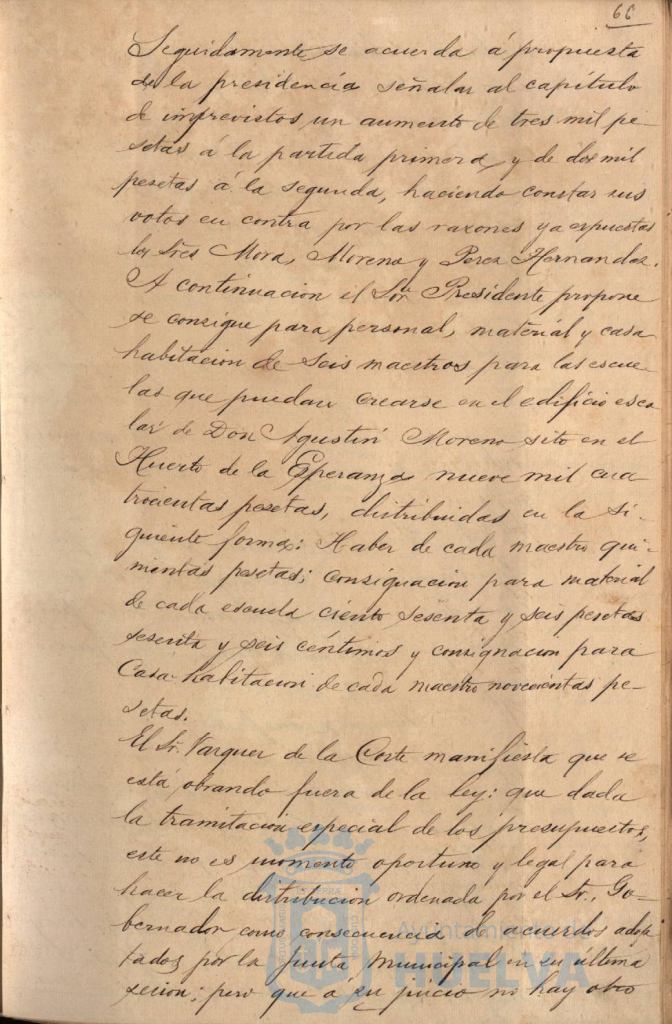 66
Seguidamente se acuerda á propuesta
de la presidencia señalar al capitulo
de imprevistos un aumento de tres mil pe-
setas á la partida primera, y de dos mil
pesetas á la segunda, haciendo constar sus
votos en contra por las razones ya expuestas
los Sres Mora, Moreno y Perez Hernandez.
A continuacion el Sor Presidente propone
se consigne para personal, material y casa
habitacion de seis maestros para las escue-
las que puedan crearse en el edificio esco-
lar de Don Agustin Moreno sito en el
Huerto de la Esperanza nueve mil cua
trocientas pesetas, distribuidas en la si-
guiente forma: Haber de cada maestro qui-
nientas pesetas; consignacion para material
de cada escuela ciento sesenta y seis pesetas
sesenta y seis céntimos y consignacion para
Casa-habitacion de cada maestro novecientas pe-
setas.
El Sr. Vazquez de la Corte manifiesta que se
está obrando fuera de la ley: que dada
la tramitacion especial de los presupuestos,
este no es momento oportuno y legal para
hacer la distribucion ordenada por el Sr. Go-
bernador como consecuencia de acuerdos adop
tados por la junta Municipal en su última
secion; pero que á su juicio no hay otro
Ayuntamiento de
HUELVA